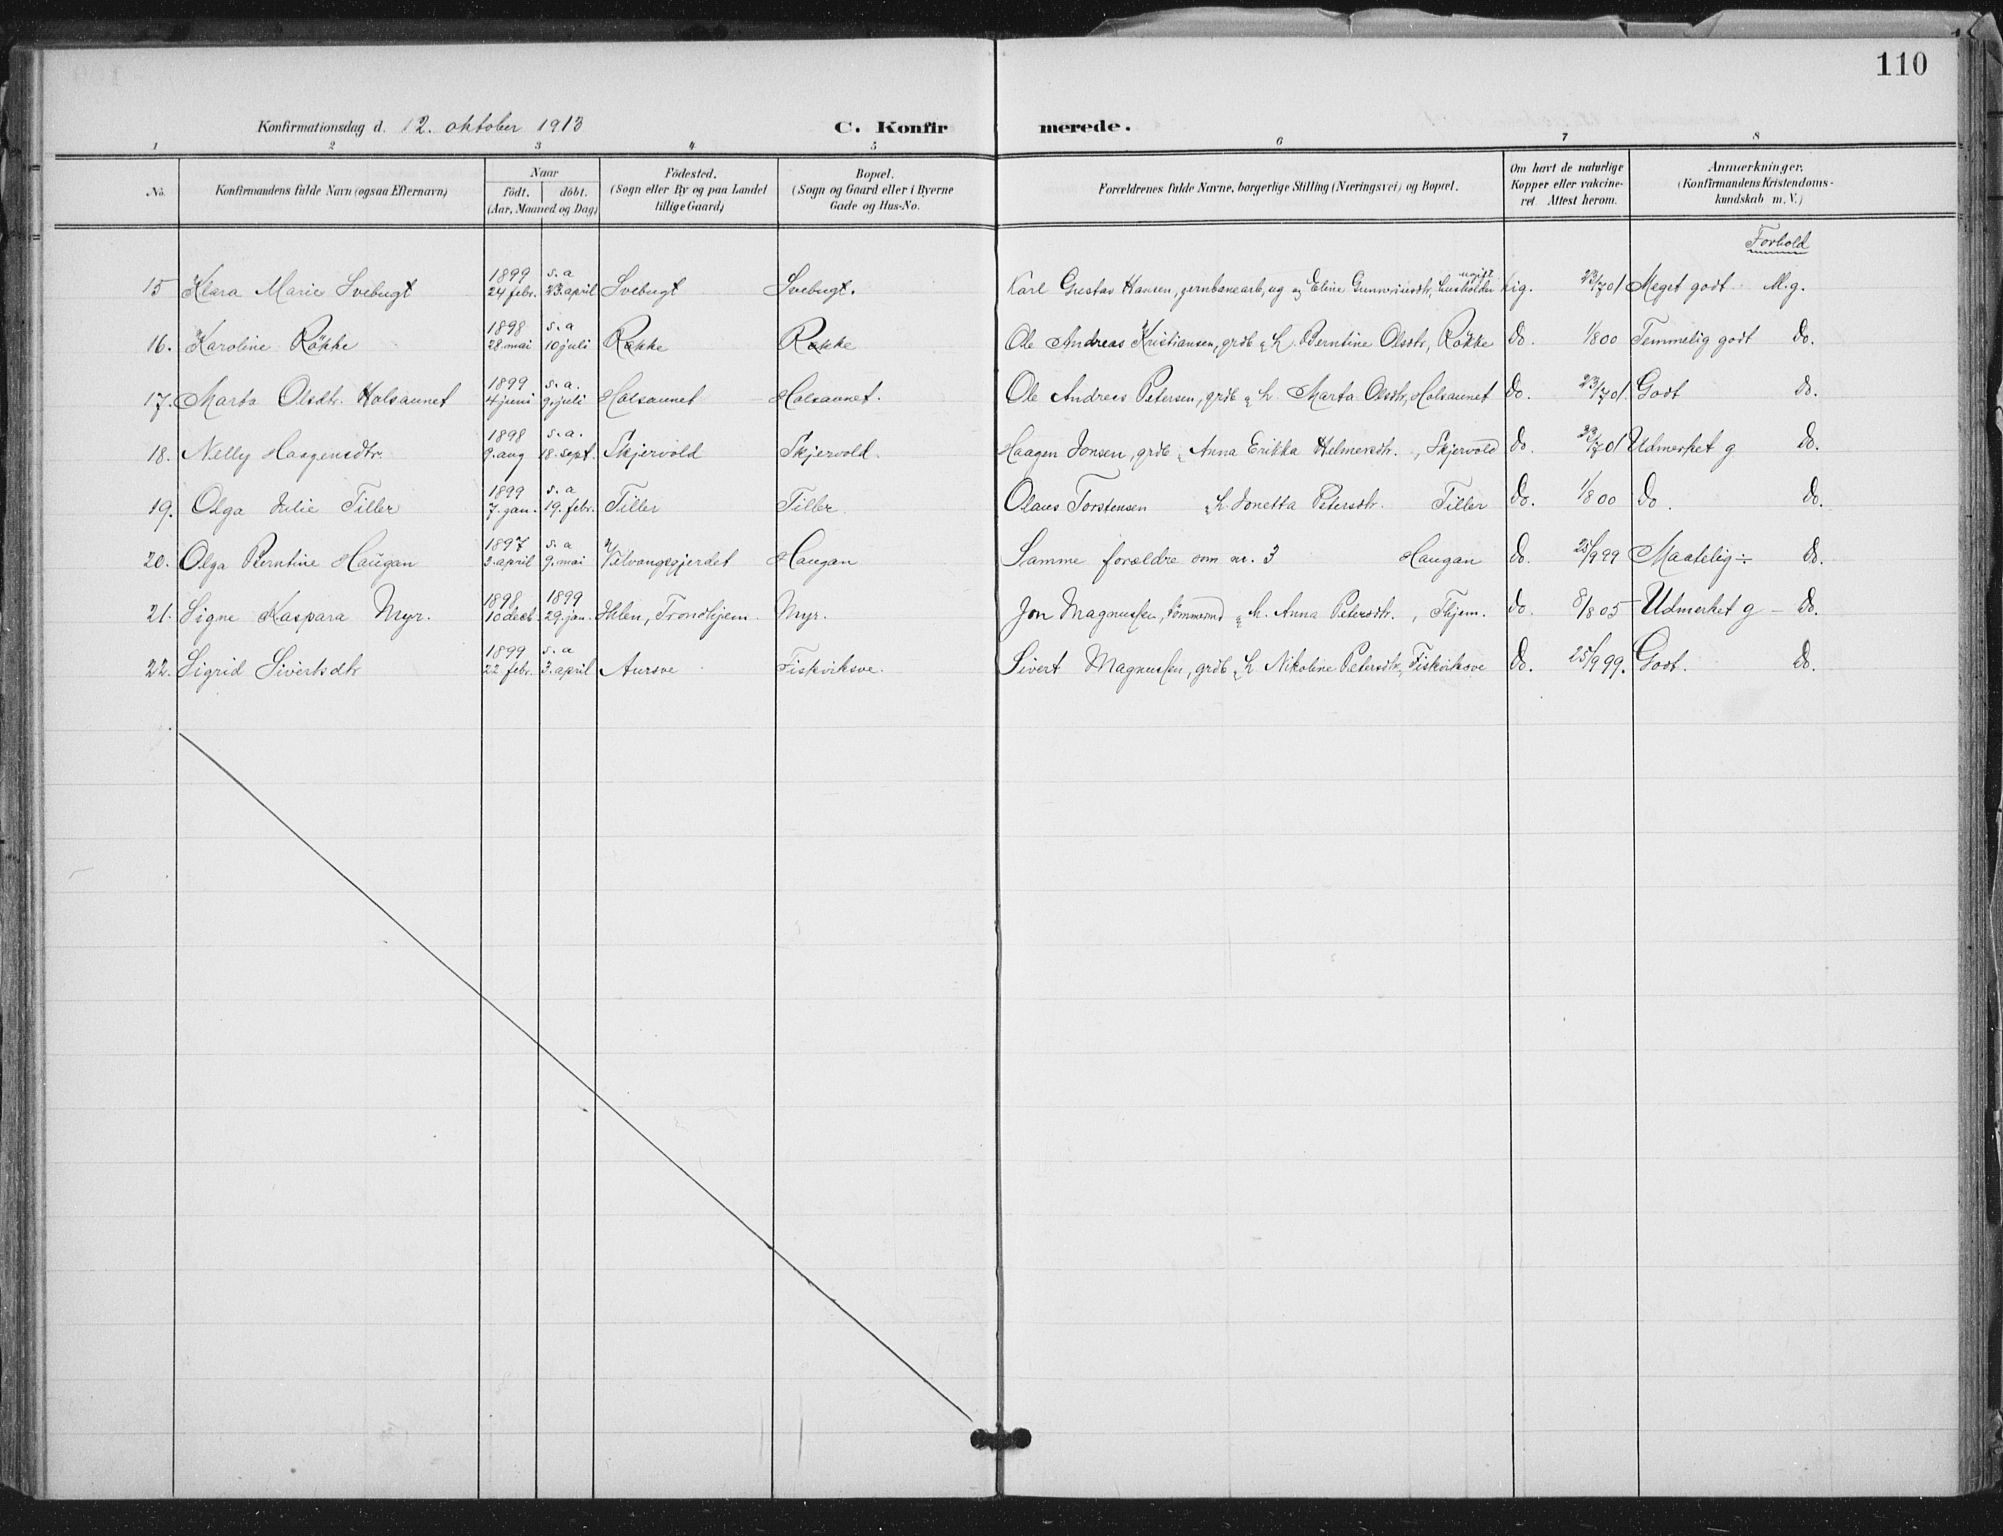 110
Konfirmationsdag d. 12. oktober 1913 C. Konfirmerede.
1 2 3 4 5 6 7 8
No. Konfirmandens fulde Navn (ogsaa Efternavn) Naar født. døbt. (Aar, Maaned og Dag) Fødested. (Sogn eller By og paa Landet tillige Gaard) Bopæl. (Sogn og Gaard eller i Byerne Gade og Hus-No. Forældrenes fulde Navne, borgerlige Stilling (Næringsvei) og Bopæl. Om havt de naturlige Kopper eller vakcineret. Attest herom. Anmærkninger. (Konfirmandens Kristendomskundskab m. V.)
Forhold
15 Klara Marie Svebugt 1899 24 febr. s. a 23 april Svebugt Svebugt. Karl Gustav Hansen, jernbanearb, ug og Eline Gunneriusdtr, ugift husholder Lig. 23/7 01 Meget godt M.g.
16. Karoline Røkke 1898 28 mai s. a 10 juli Røkke Røkke Ole Andreas Kristiansen, grdb & h. Berntine Olsdtr, Røkke Do. 1/8 00 Temmelig godt Do.
17. Marta Olsdtr. Halsaunet 1899 4 juni s. a. 9. juli Halsaunet Halsaunet. Ole Andreas Petersen, grdb & h. Marta Olsdtr, Halsaunet Do. 23/7 01. Godt Do.
18. Nelly Haagensdtr. 1898 9. aug s. a. 18. sept. Skjervold Skjervold. Haagen Jonsen, grdb & Anna Erikka Helmersdtr., Skjervold Do. 23/7 01 Udmerket g Do.
19. Olga Julie Tiller 1899 7. jan. s. a 19. febr. Tiller Tiller Olaus Torstensen & h. Jonetta Petersdtr. Tiller Do. 1/8 00 Do. Do.
20. Olga Berntine Haugan 1897 3. april s. a 9. mai Velvangsgjerdet Haugan Samme forældre som nr. 3 Haugan Do. 25/9 99 Maatelig ÷ Do.
21. Signe Kaspara Myr. 1898 10 decb. 1899 29. jan. Ihlen, Trondhjem. Myr. Jon Magnussen, tømmermd & h. Anna Petersdtr., Thjem. Do. 8/8 05 Udmerket g – Do.
22. Sigrid Sivertsdtr 1899 22 febr. s. a 3. april Aursve Fiskviksve. Sivert Magnussen, grdb & h Nikoline Petersdtr, Fiskviksve Do. 25/9 99. Godt. Do.